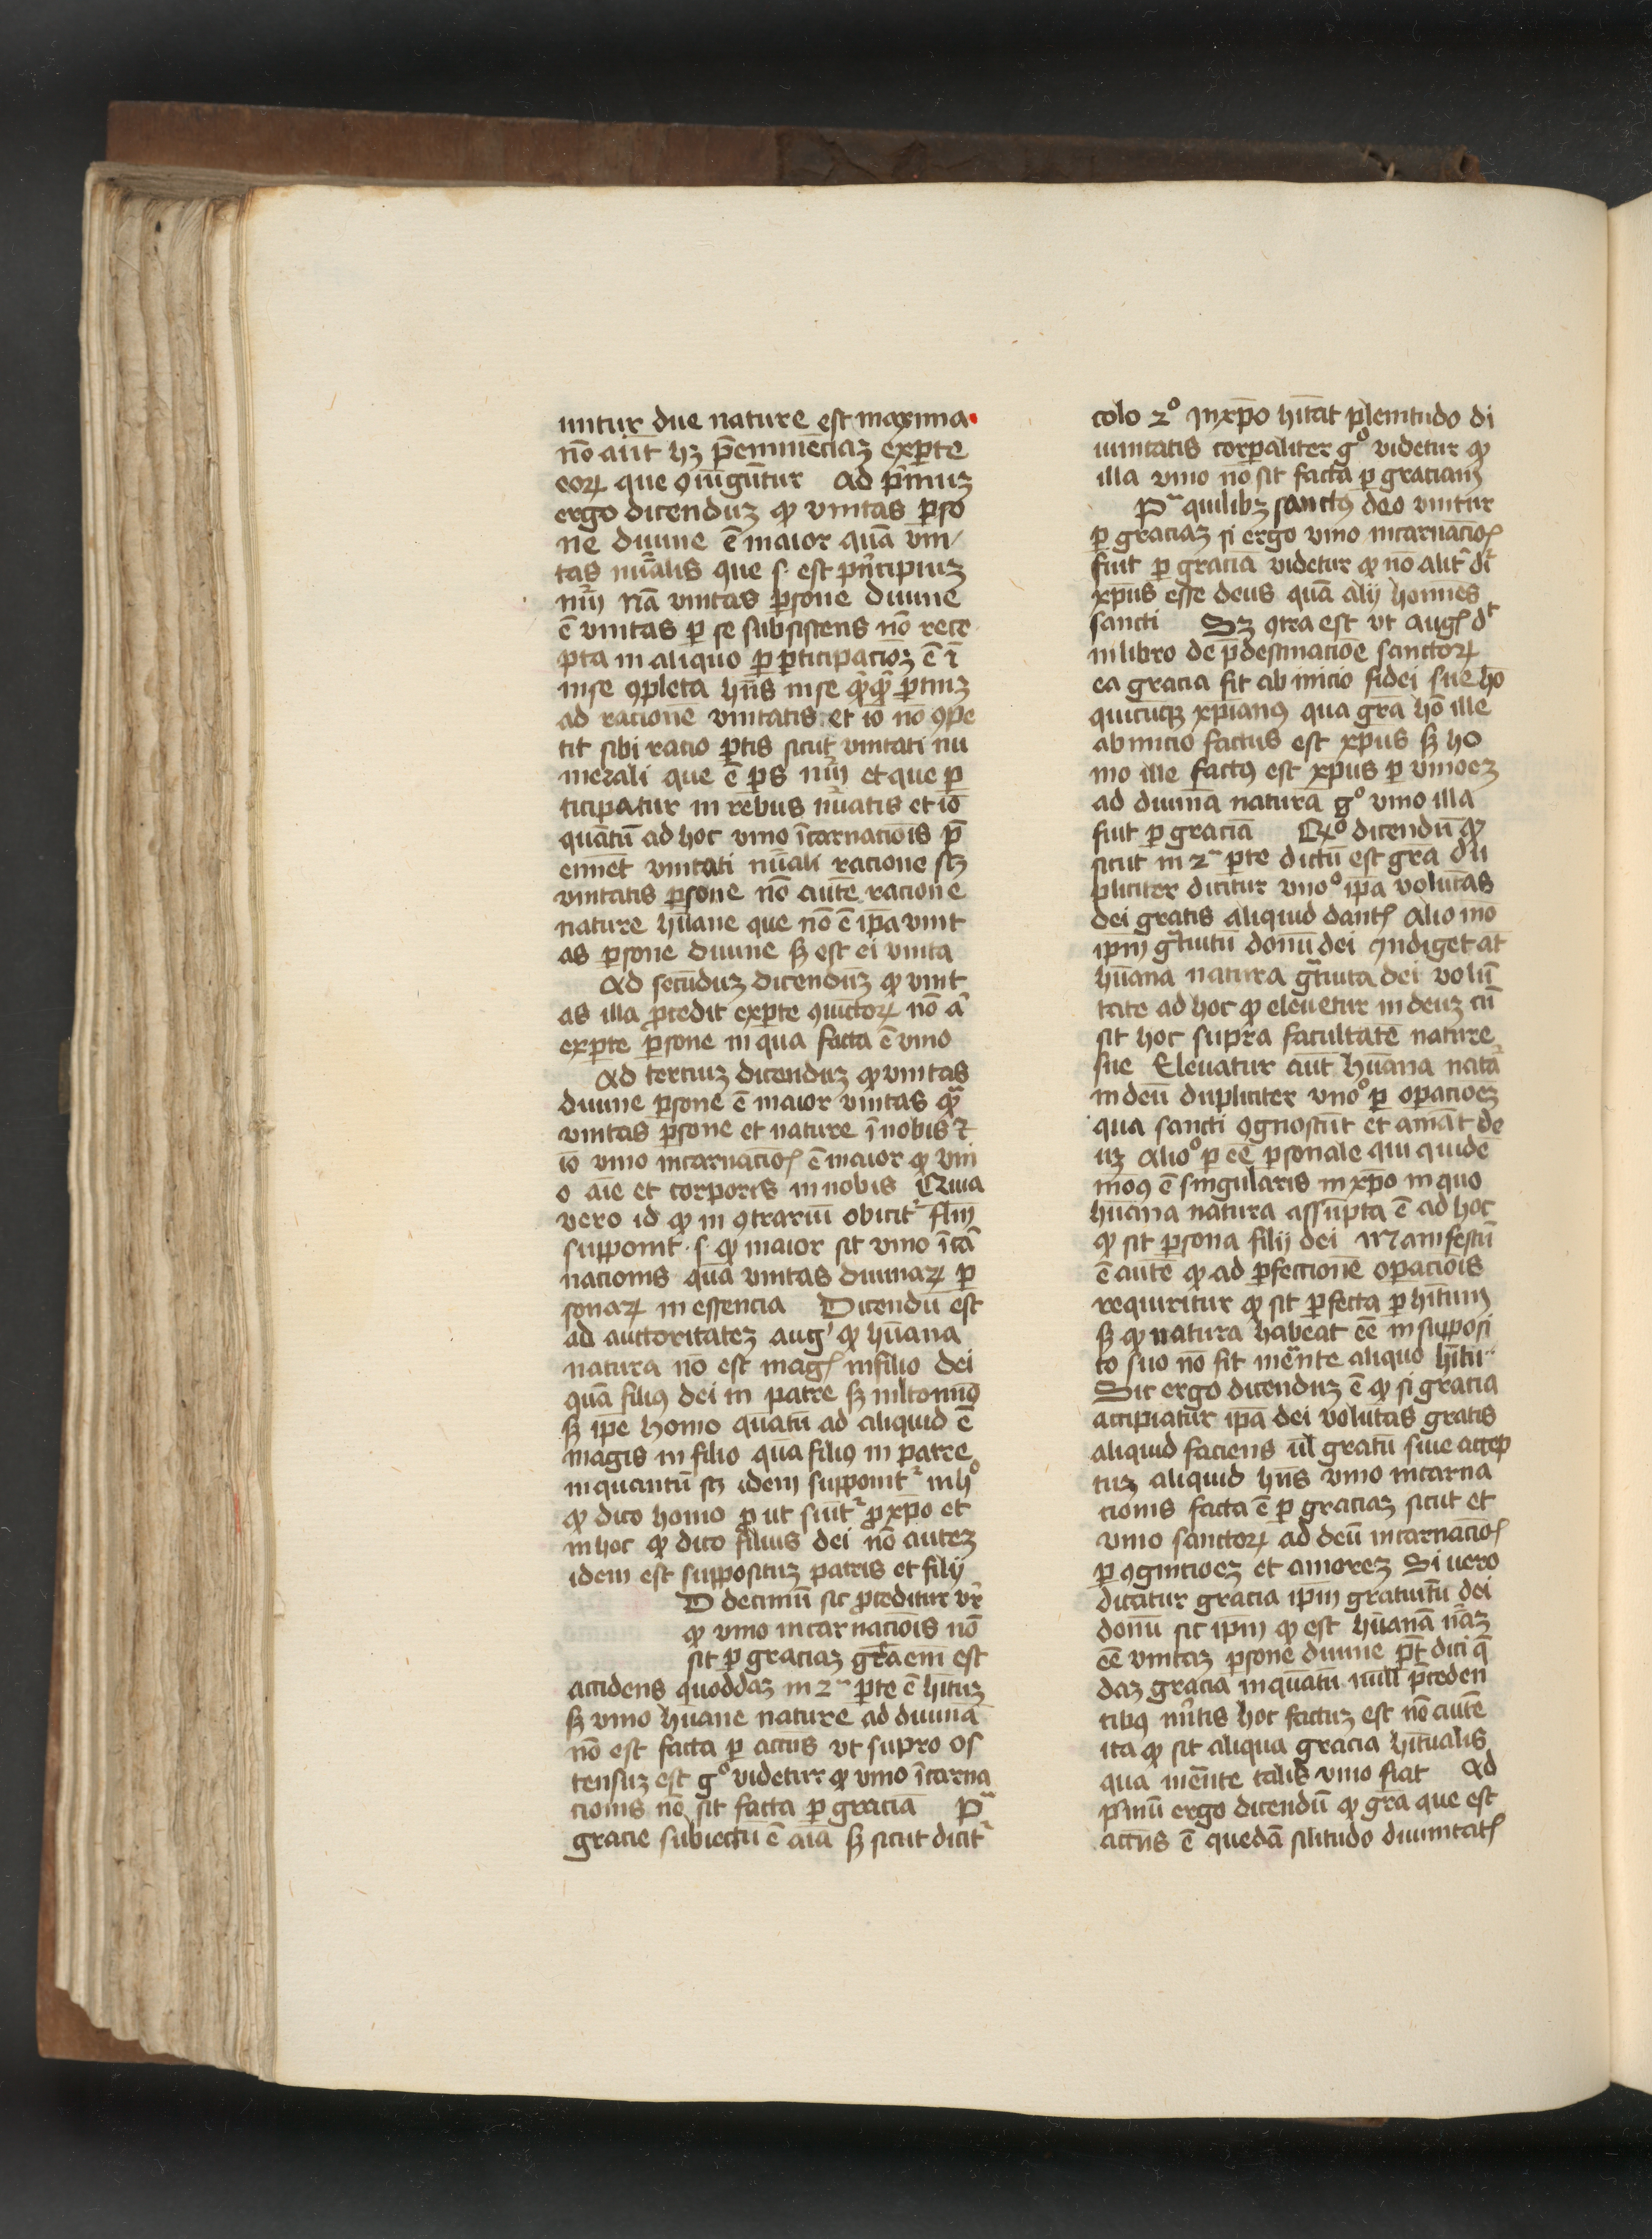 untur due nature est maxima
nō aut̄ hꝫ p̄eminēciaꝫ ex ꝑte
eoꝝ que ꝯiūgūtur Ad p̄muꝫ
ergo dicenduꝫ ꝙ vnitas ꝑso
ne diuine ē maior quā vni
tas nūalis que s. est pn̄cipiuꝫ
nūi Nā vnitas ꝑsone diuine
ē vnitas ꝑ se subsistens nō rece
pta in aliquo ꝑ ꝑticipacioꝫ ē ⁊
in se ꝯpleta hn̄s in se ꝑtinꝫ
ad racionē vnitatis et io nō ꝯpe
tit sibi racio ꝑtis sicut vnitati nu
merali que ē ꝑs nūi et que ꝑ
ticipatur in rebus nūatis et iō
quātū ad hoc vnio īcarnacōis p̄
eminet vnitati nūali racione scꝫ
vnitatis ꝑsone nō autē racione
nature hūane que nō ē ip̄a vnit
as ꝑsone diuine sꝫ est ei vnita
Ad secūduꝫ dicenduꝫ ꝙ vnit
as illa ꝓcedit ex ꝑte ꝯiūctoꝝ nō a
ex ꝑte ꝑsone in qua facta ē vnio
Ad terciuꝫ dicenduꝫ ꝙ vnitas
diuine ꝑsone ē maior vnitas qͣ
vnitas ꝑsone et nature ī nobis ⁊
io vnio incarnacioꝭ ē maior ꝙ vni
o aīe et corporis in nobis Quia
vero id ꝙ in ꝯtrariū obicitᷣ flm
supponit .s. ꝙ maior sit vnio īca
nacionis quā vnitas diuinaꝝ ꝑ
sonaꝝ in essencia Dicendū est
ad auctoritateꝫ aug ꝙ hūana
natura nō est magꝭ in filio dei
quā filiꝯ dei in patre sꝫ mltominꝰ
sꝫ ip̄e homo quātū ad aliquid ē
magis in filio quā filiꝯ in patre
in quantū scꝫ idem supponitᷣ in hͦ
ꝙ dico homo ꝓ ut sūitᷣ ꝓ xp̄o et
in hoc ꝙ dico filius dei nō auteꝫ
idem est suppositum patris et filij
D decimū sic ꝓceditur vr̄
ꝙ vnio incarnacōis nō
sit ꝑ graciaꝫ gra em̄ est
accidens quoddaꝫ in 2ᵃ ꝑte ē hituꝫ
sꝫ vnio hūane nature ad diuinā
nō est facta ꝑ accn̄s vt supra os
tensuꝫ est gͦ videtur ꝙ vnio īcarna
cionis nō sit facta ꝑ graciā Pͣ
gracie subiectū ē aīa sꝫ sicut dicitᷣ
colo 2ͦ In xp̄o hitat plenitudo di
uinitatis corꝑaliter gͦ videtur ꝙ
illa vnio nō sit facta ꝑ graciam
Pͣ quilibꝫ sanctꝰ deo vnitur
ꝑ graciaꝫ si ergo vnio incarnacioꝭ
fuit ꝑ graciā videtur ꝙ nō alitᷣ dr̄
xp̄us esse deus quā alij homines
sancti Sꝫ ꝯtra est vt augꝭ dt
in libro de p̄destinacione sanctoꝝ
ea gracia fit ab inicio fidei sue hō
quicūqꝫ xp̄ianꝰ qua gra hō ille
ab inicio factus est xp̄us sꝫ ho
mo ille factꝰ est xp̄us ꝑ vnioeꝫ
ad diuinā naturā gͦ vnio illa
fuit ꝑ graciā Rͦ dicendū ꝙ
sicut in 2ᵃ ꝑte dictū est gra du
pliciter dicitur vnoͦ ip̄a volūtas
dei gratis aliquid dantꝭ Alio mo
ip̄m gͣtuitū donū dei Indiget at
hūana natura gͣtuita dei volū
tate ad hoc ꝙ eleuetur in deuꝫ cū
sit hoc supra facultatē nature
sue Eleuatur aut̄ hūana natᷣa
in deū dupliciter vnoͦ ꝑ oꝑacioeꝫ
qua sancti ꝯgnoscūt et amāt de
uꝫ Alioͦ ꝑ eē ꝑsonale qui quidē
modꝰ ē singularis in xp̄o in quo
hūana natura assūpta ē ad hoc
ꝙ sit ꝑsona filij dei Manifestū
ē autē ꝙ ad ꝑfectionē oꝑacōis
requiritur ꝙ sit ꝑfecta ꝑ hitum
sꝫ ꝙ natura habeat eē in supposi
to suo nō fit mediante aliquo hitu
Sic ergo dicenduꝫ ē ꝙ si gracia
accipiatur ip̄a dei volūtas gratis
aliquid faciens ul̄ gratū siue accep
tuꝫ aliquid hn̄s vnio incarna
cionis facta ē ꝑ graciaꝫ sicut et
vnio sanctoꝝ ad deū incarnacioꝭ
ꝑ ꝯgnicioeꝫ et amoreꝫ Si uero
dicatur gracia ip̄m gratuitū dei
donū sic ip̄m ꝙ est hūanā nāꝫ
eē vnitaꝫ ꝑsone diuine pt̄ dici q̄
daꝫ gracia inquātū null p̄ceden
tibꝰ mr̄itis hoc factuꝫ est nō autē
ita ꝙ sit aliqua gracia hitualis
qua mediante talis vnio fiat Ad
pͥmū ergo dicendū ꝙ gra que est
accn̄s ē quedā sīlitudo diuinitatꝭ